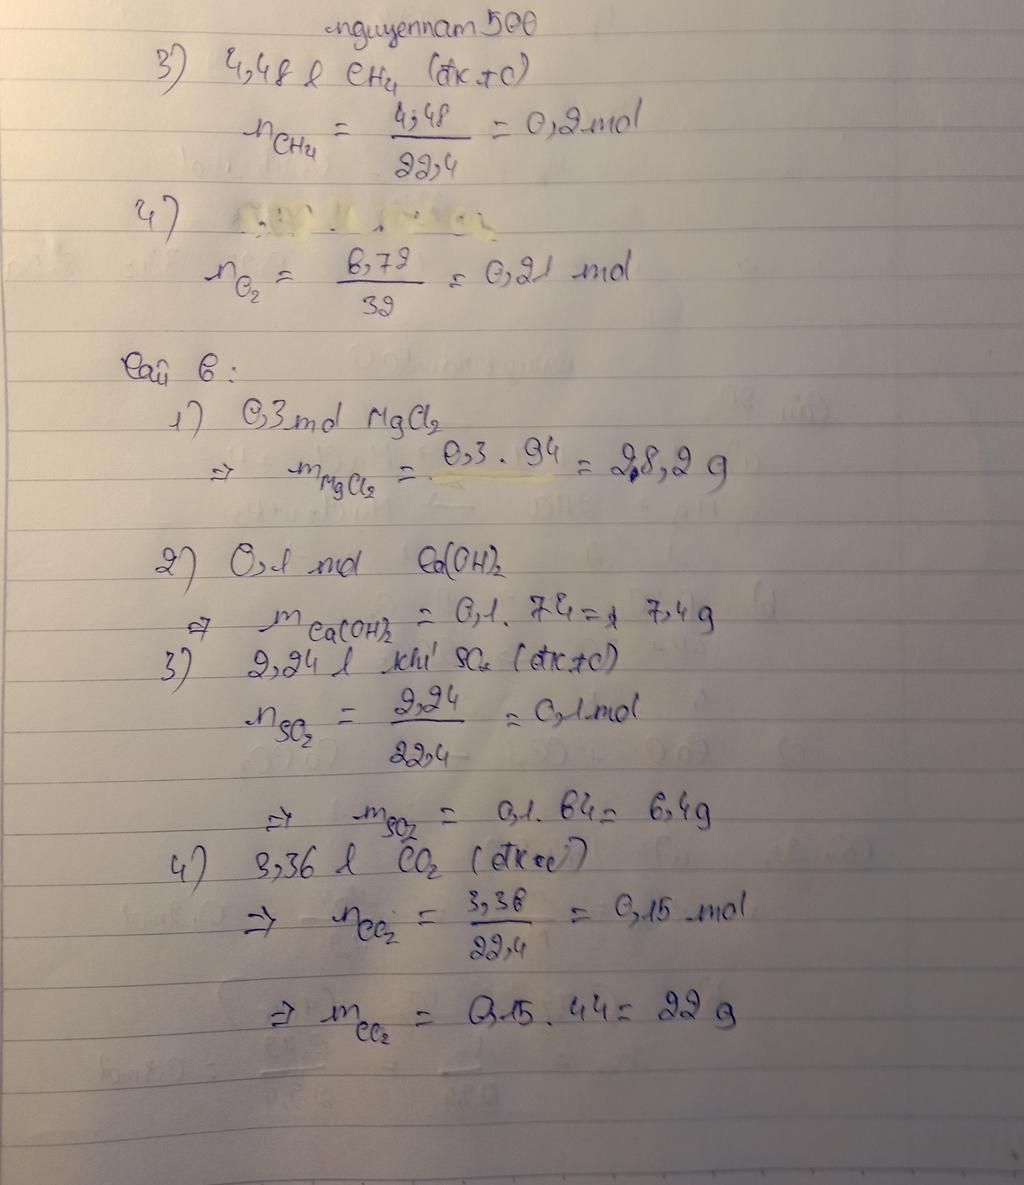 nguyennam500
3) 4,48 l CH4 (đktc)
nCH4 = 4,48/22,4 = 0,2 mol
4)
nO2 = 6,72/32 = 0,21 mol
Câu 6:
1) 0,3 mol MgCl2
=> mMgCl2 = 0,3 . 94 = 28,2 g
2) 0,1 mol Ca(OH)2
=> mCa(OH)2 = 0,1 . 74 = 7,4 g
3) 2,24 l khí SO2 (đktc)
nSO2 = 2,24/22,4 = 0,1 mol
=> mSO2 = 0,1 . 64 = 6,4 g
4) 3,36 l CO2 (đktc)
=> nCO2 = 3,36/22,4 = 0,15 mol
=> mCO2 = 0,15 . 44 = 22 g